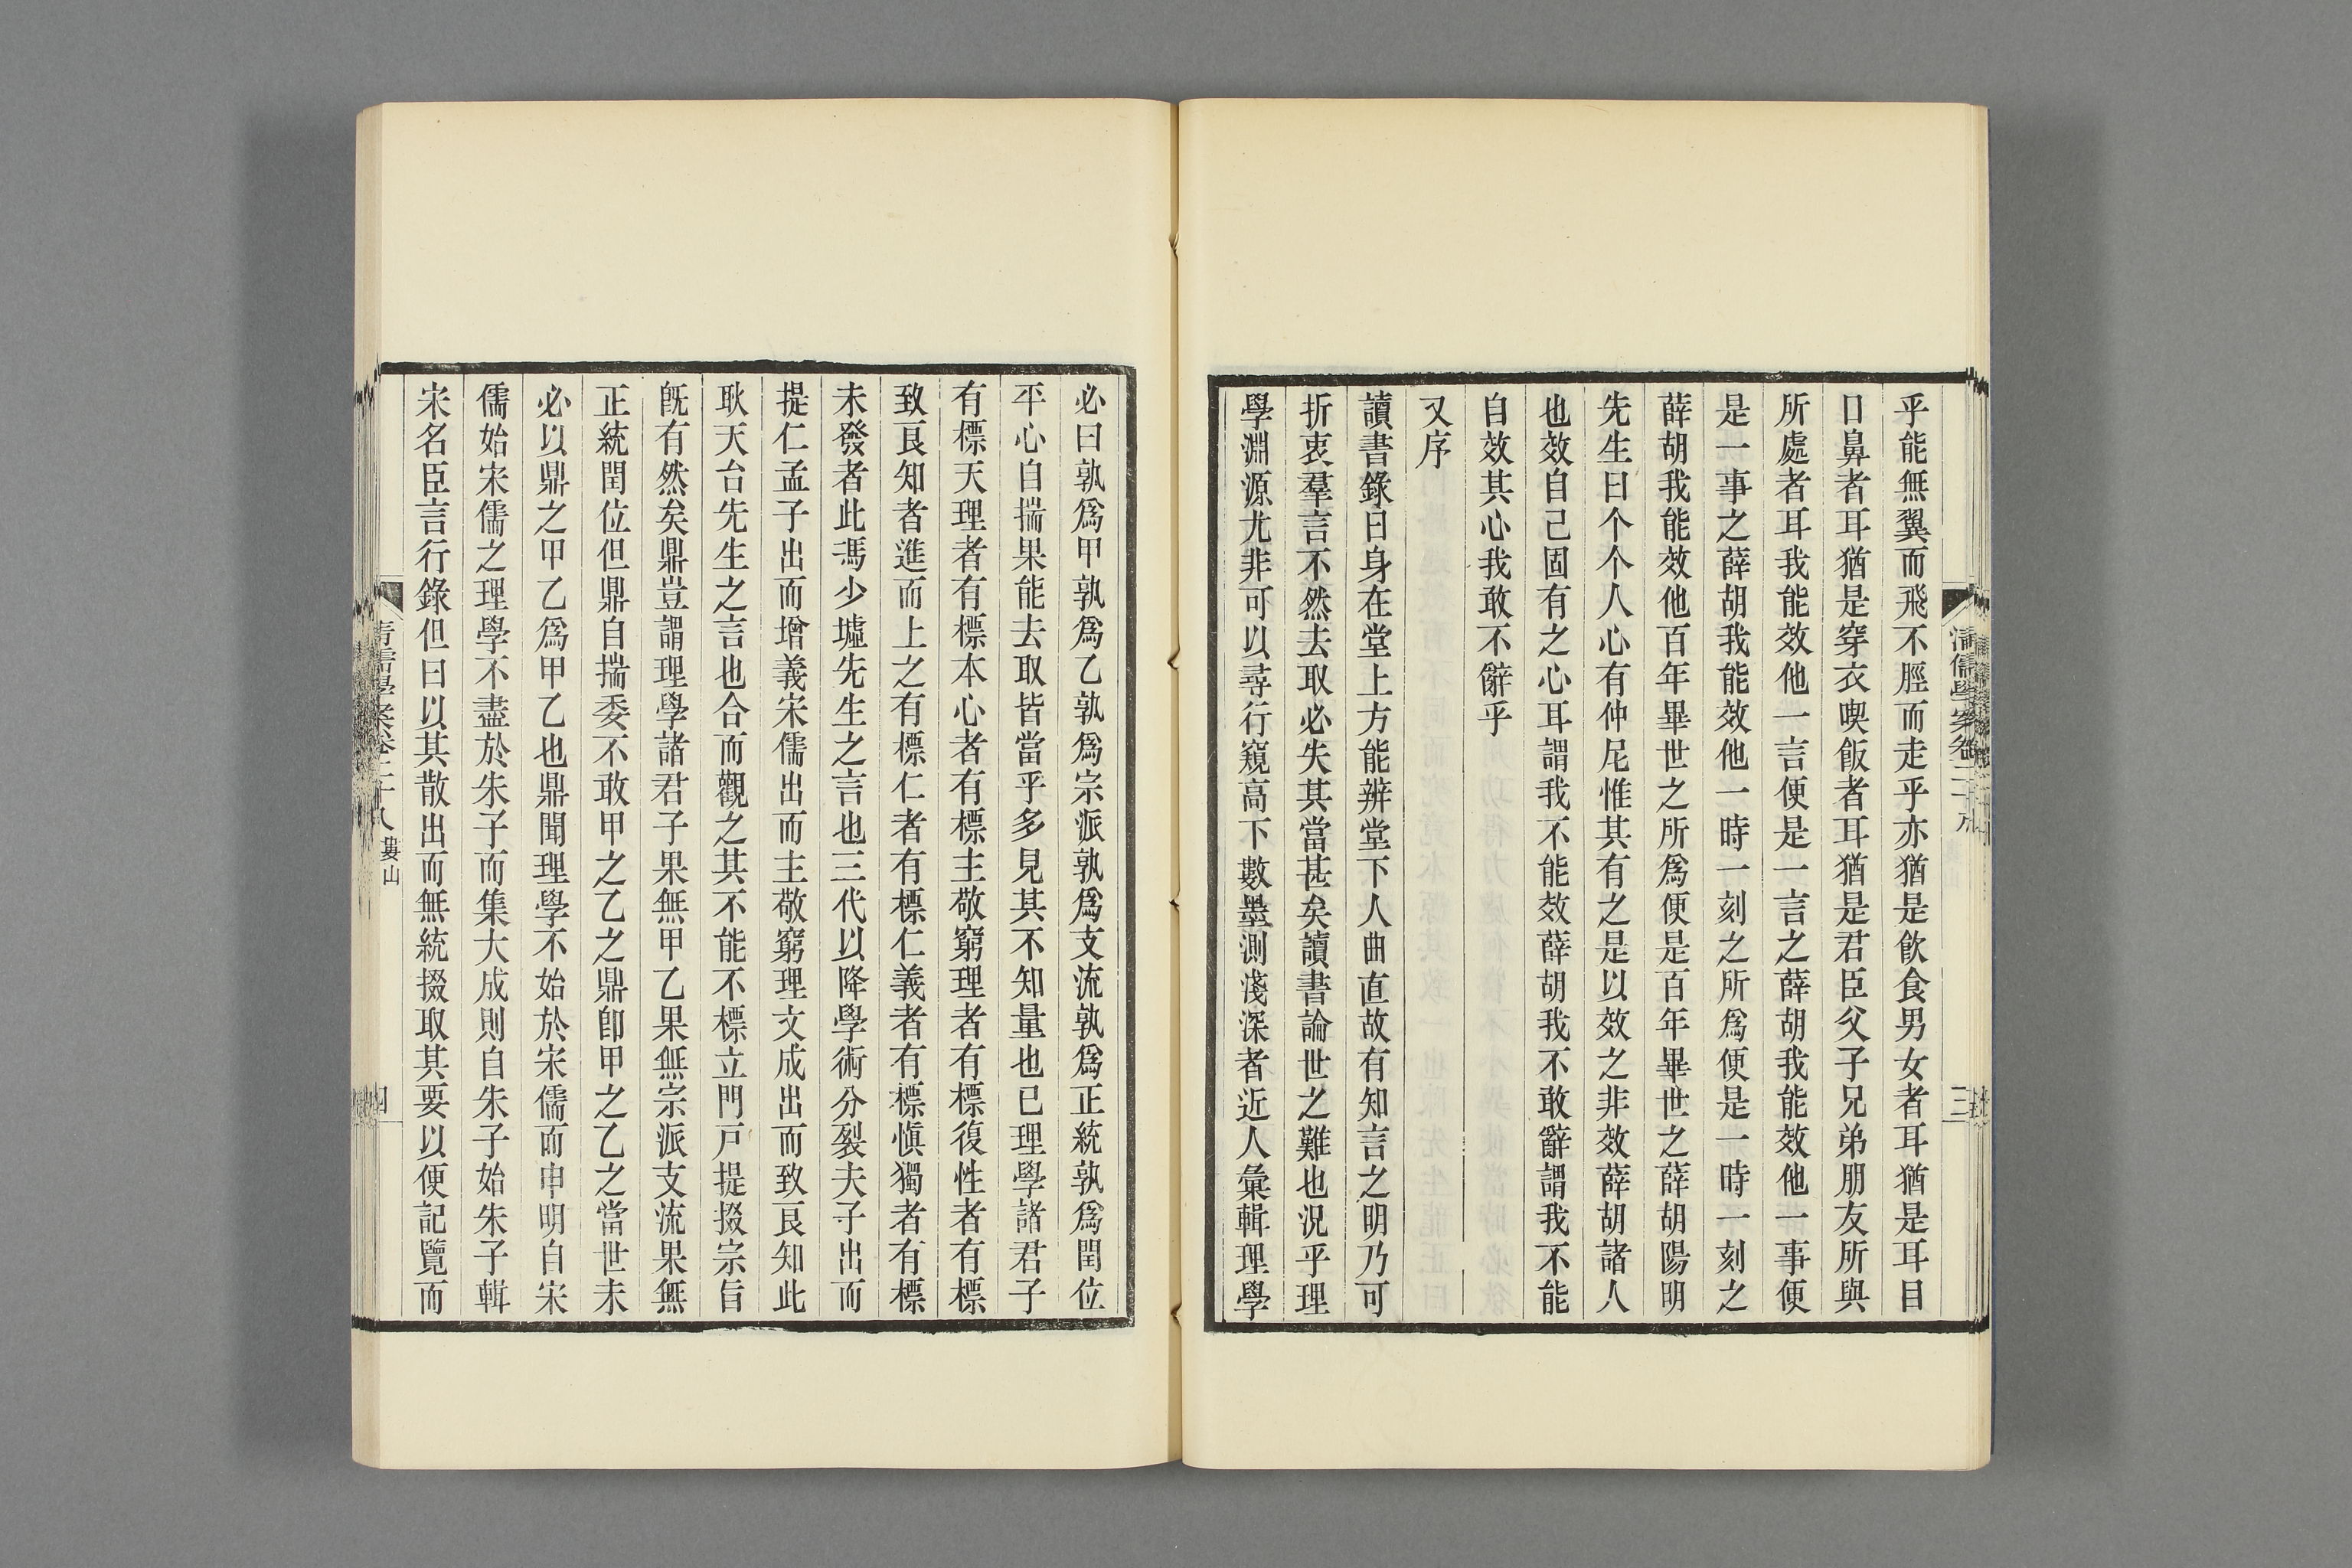 乎能無翼而飛不脛而走乎亦猶是飲食男女者耳猶是耳目
口鼻者耳猶是穿衣喫飯者耳猶是君臣父子兄弟朋友所與
所處者耳我能效他一言便是一言之薛胡我能效他一事便
是一事之薛胡我能效他一時一刻之所爲便是一時一刻之
薛胡我能效他百年畢世之所爲便是百年畢世之薛胡陽明
先生曰个个人心有仲尼惟其有之是以效之非效薛胡諸人
也效自己固有之心耳謂我不能效薛胡我不敢辭謂我不能
自效其心我敢不辭乎
又序
讀書錄曰身在堂上方能辨堂下人曲直故有知言之明乃可
折衷羣言不然去取必失其當甚矣讀書論世之難也況乎理
學淵源尤非可以尋行窺高下數墨測淺深者近人彙輯理學
清儒學案卷二十八
三
必曰孰爲甲孰爲乙孰爲宗派孰爲支流孰爲正統孰爲閏位
平心自揣果能去取皆當乎多見其不知量也已理學諸君子
有標天理者有標本心者有標主敬窮理者有標復性者有標
致良知者進而上之有標仁者有標仁義者有標愼獨者有標
未發者此馮少墟先生之言也三代以降學術分裂夫子出而
提仁孟子出而增義宋儒出而主敬窮理文成出而致良知此
耿天台先生之言也合而觀之其不能不標立門戸提掇宗旨
旣有然矣鼎豈謂理學諸君子果無甲乙果無宗派支流果無
正統閏位但鼎自揣委不敢甲之乙之鼎卽甲之乙之當世未
必以鼎之甲乙爲甲乙也鼎聞理學不始於宋儒而申明自宋
儒始宋儒之理學不盡於朱子而集大成則自朱子始朱子輯
宋名臣言行錄但曰以其散出而無統掇取其要以便記覽而
清儒學案卷二十八 婁山
四